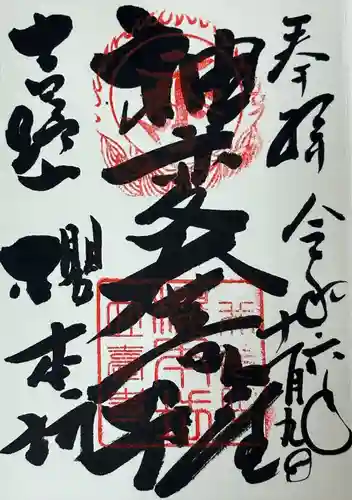 奉拝
令和六年
十一月九日
神変大菩薩
吉野山
櫻本坊